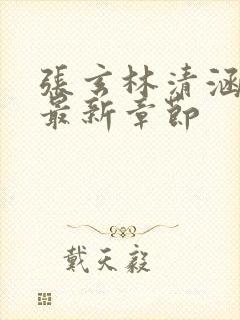 張玄林清涵
最新章節
戴天毅